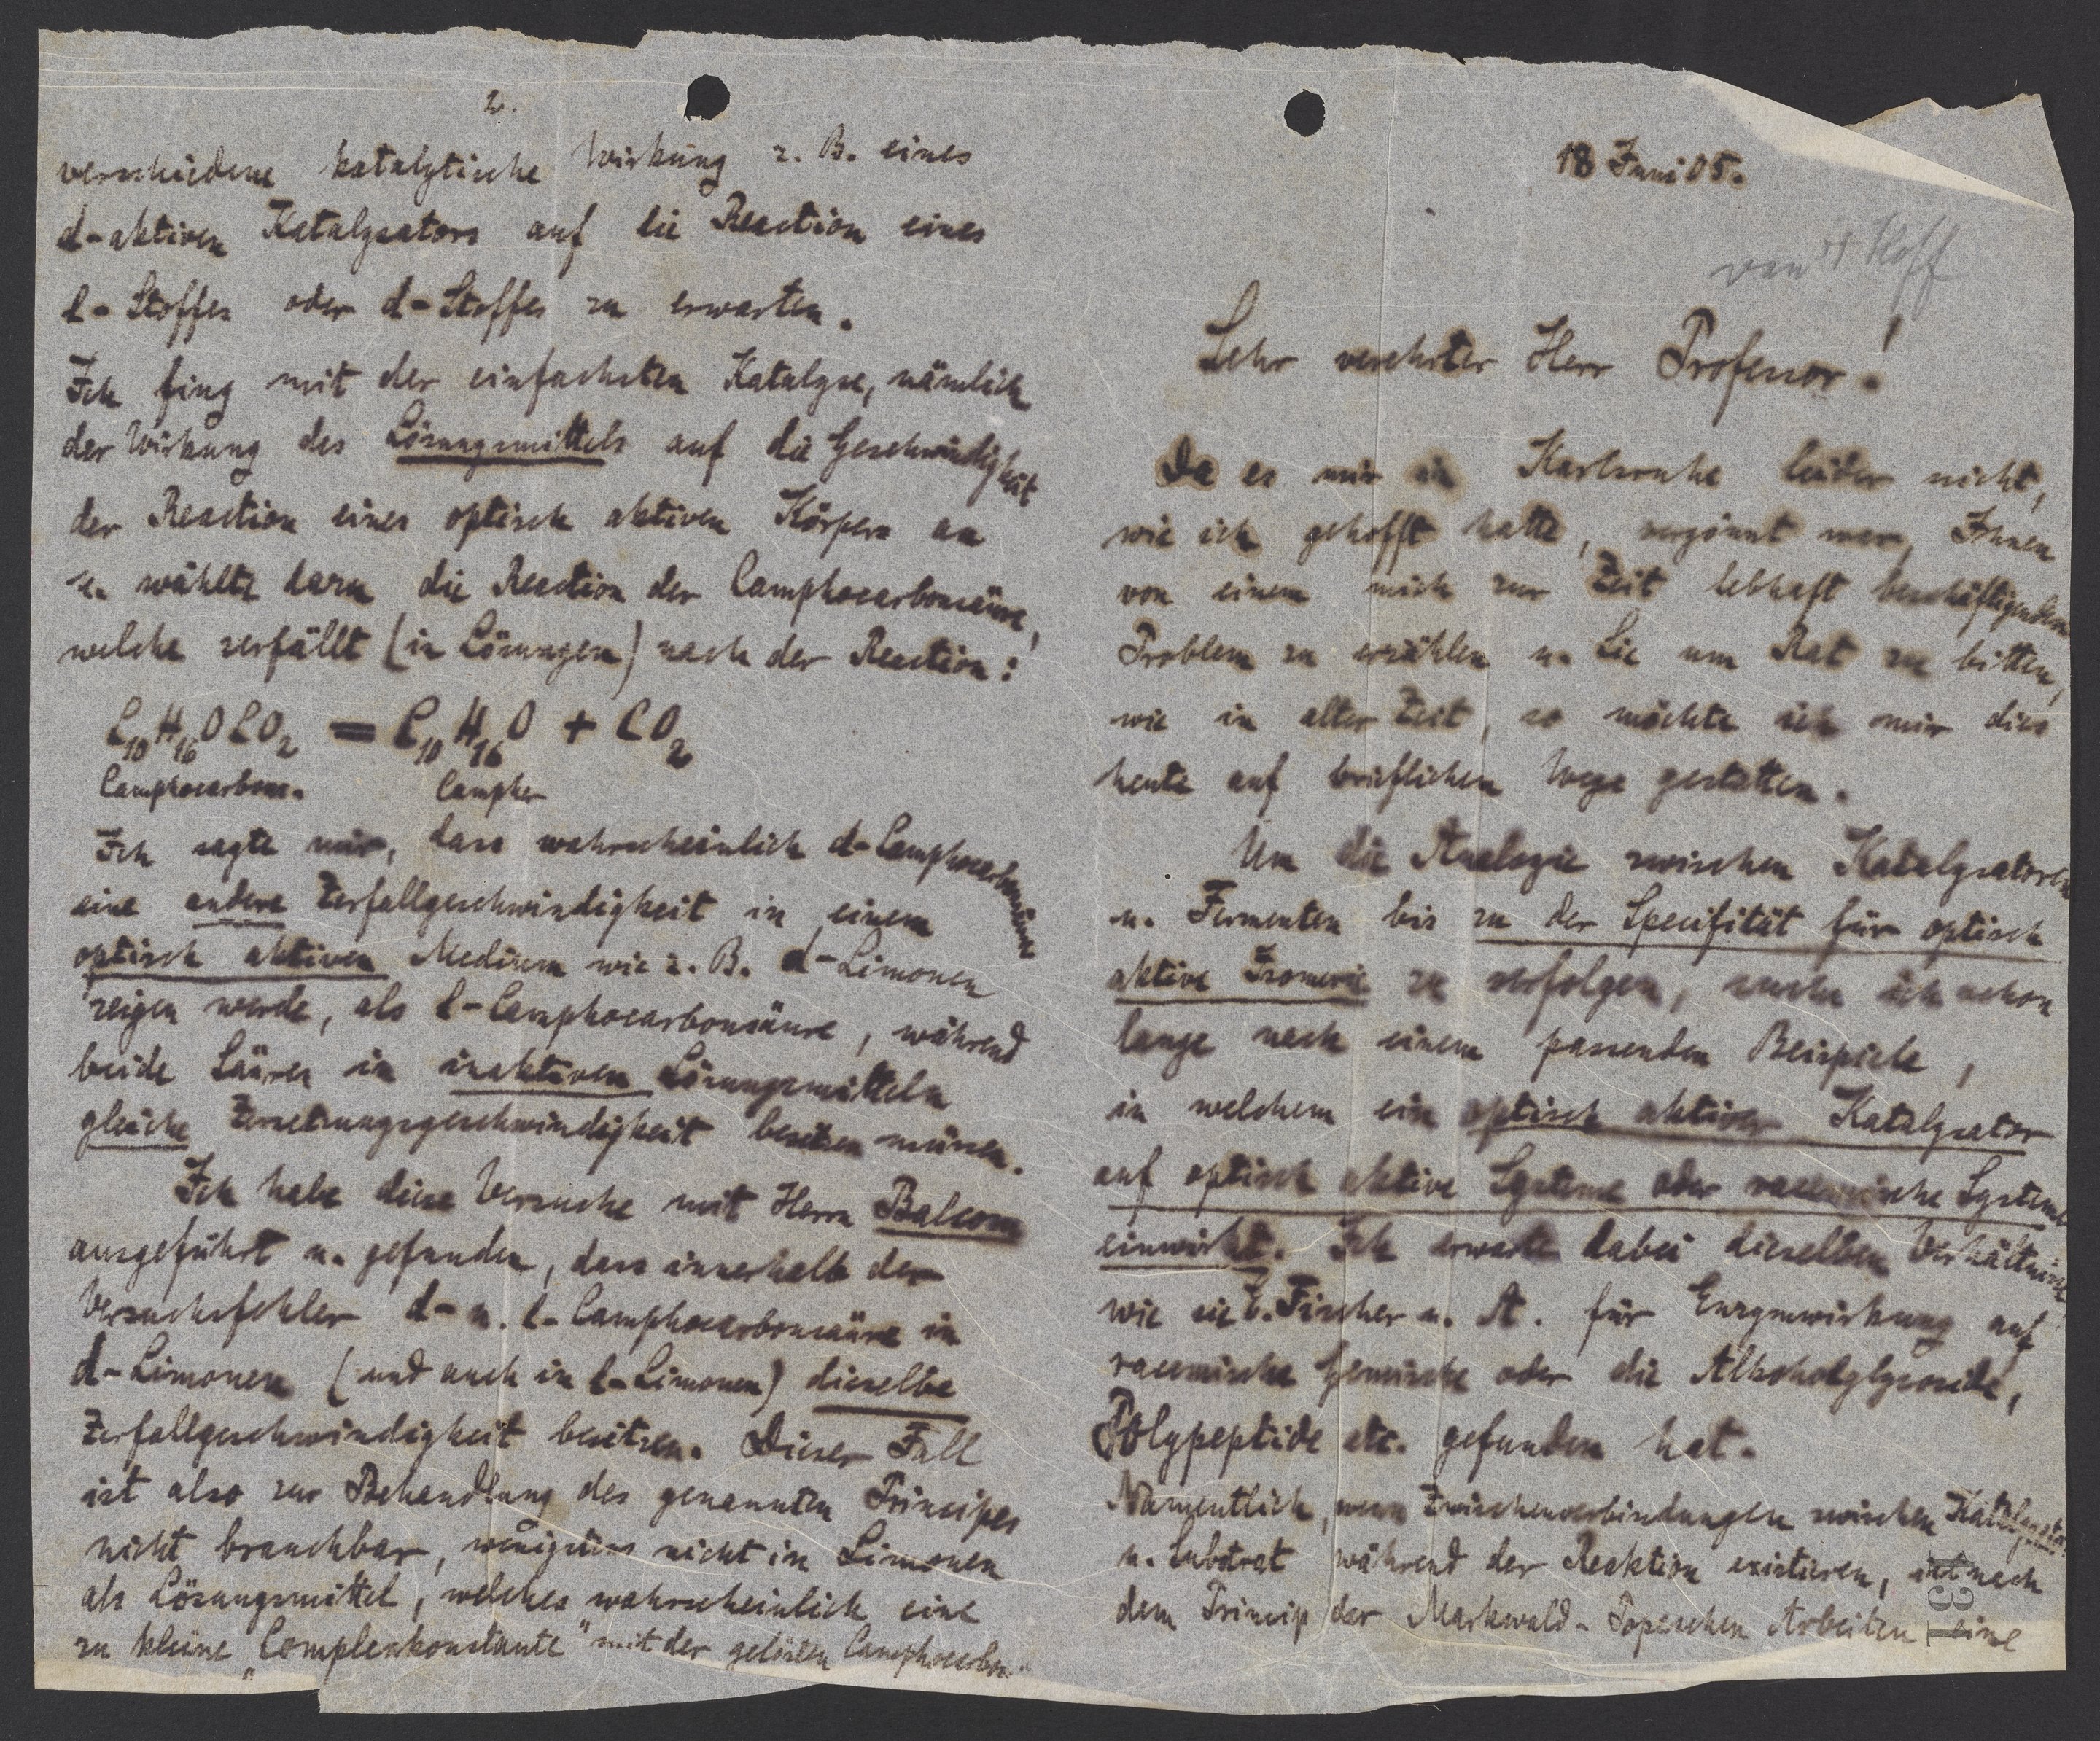 18 Juni 05.
van't Hoff
Sehr verehrter Herr Professor!
Da es mir in Karlsruhe leider nicht,
wie ich gehofft hatte, vergönnt war, Ihnen
von einem mich zur Zeit lebhaft beschäftigenden
Problem zu erzählen u. Sie um Rat zu bitten,
wie in alter Zeit, so möchte ich mir dies
heute auf brieflichem Wege gestatten.
Um die Analogie zwischen Katalysatoren
u. Fermenten bis zu der Specifität für optisch
aktive Isomerie zu verfolgen, suche ich schon
lange nach einem passenden Beispiele,
in welchem ein optisch aktiver Katalysator
auf optisch aktive Systeme oder racemische Systeme
einwirkt. Ich erwarte dabei dieselben Verhältnisse
wie sie E. Fischer u. A. für Enzymwirkung auf
racemische Gemische oder die Alkoholglycoside,
Polypeptide etc. gefunden hat.
Namentlich, wenn Zwischenverbindungen zwischen Katalysator
u. Substrat während der Reaktion existieren, ist nach
dem Princip der Markwald-Popeschen Arbeiten eine
13
2.
verschiedene katalytische Wirkung z. B. eines
d-aktiven Katalysators auf die Reaction eines
l-Stoffes oder d-Stoffes zu erwarten.
Ich fing mit der einfachsten Katalyse, nämlich
der Wirkung des Lösungsmittels auf die Geschwindigkeit
der Reaction eines optisch aktiven Körpers an
u. wählte dazu die Reaction der Camphocarbonsäure,
welche zerfällt (in Lösungen) nach der Reaction:
C10H16OCO2 = C10H16O + CO2
Camphocarbons. Campher
Ich sagte mir, dass wahrscheinlich d-Camphocarbonsäure
eine andere Zerfallgeschwindigkeit in einem
optisch aktiven Medium wie z. B. d-Limonen
zeigen werde, als l-Camphocarbonsäure, während
beide Säuren in inaktiven Lösungsmitteln
gleiche Zersetzungsgeschwindigkeit besitzen müssen.
Ich habe diese Versuche mit Herrn Balcom
ausgeführt u. gefunden, dass innerhalb der
Versuchsfehler d- u. l-Camphocarbonsäure in
d-Limonen (und auch in l-Limonen) dieselbe
Zerfallgeschwindigkeit besitzen. Dieser Fall
ist also zur Behandlung des genannten Principes
nicht brauchbar, wenigstens nicht in Limonen
als Lösungsmittel, welches wahrscheinlich eine
zu kleine "Complexkonstante" mit der gelösten Camphocarbon-